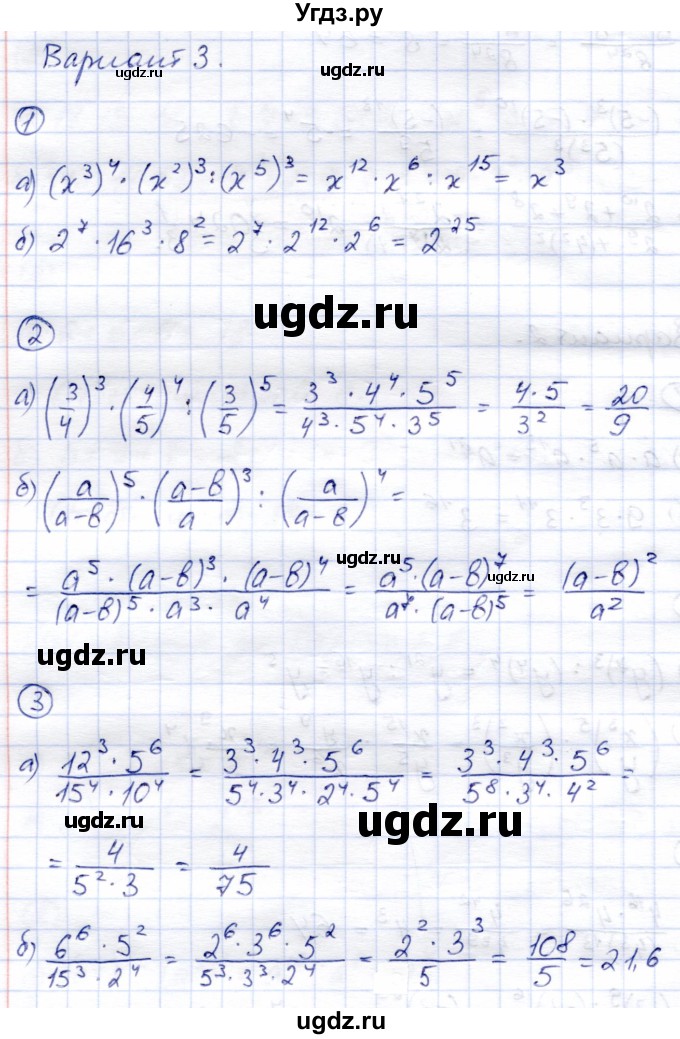 Угдз.ру
Вариант 3.
ugdz.ru
ugdz.ru
1
а) (x³)⁴ · (x²)³ : (x⁵)³ = x¹² · x⁶ : x¹⁵ = x³
ugdz.ru
б) 2⁷ · 16³ · 8² = 2⁷ · 2¹² · 2⁶ = 2²⁵
ugdz.ru
2
а) (3/4)³ · (4/5)⁴ : (3/5)⁵ = 3³ · 4⁴ · 5⁵ / 4³ · 5⁴ · 3⁵ = 4 · 5 / 3² = 20/9
ugdz.ru
б) (a/(a-в))⁵ · ((a-в)/a)³ : (a/(a-в))⁴ =
= a⁵ · (a-в)³ · (a-в)⁴ / (a-в)⁵ · a³ · a⁴ = a⁵ · (a-в)⁷ / a⁷ · (a-в)⁵ = (a-в)² / a²
ugdz.ru
ugdz.ru
ugdz.ru
3
а) 12³ · 5⁶ / 15⁴ · 10⁴ = 3³ · 4³ · 5⁶ / 5⁴ · 3⁴ · 2⁴ · 5⁴ = 3³ · 4³ · 5⁶ / 5⁸ · 3⁴ · 4² =
ugdz.ru
ugdz.ru
= 4 / 5² · 3 = 4/75
б) 6⁶ · 5² / 15³ · 2⁴ = 2⁶ · 3⁶ · 5² / 5³ · 3³ · 2⁴ = 2² · 3³ / 5 = 108/5 = 21,6
ugdz.ru